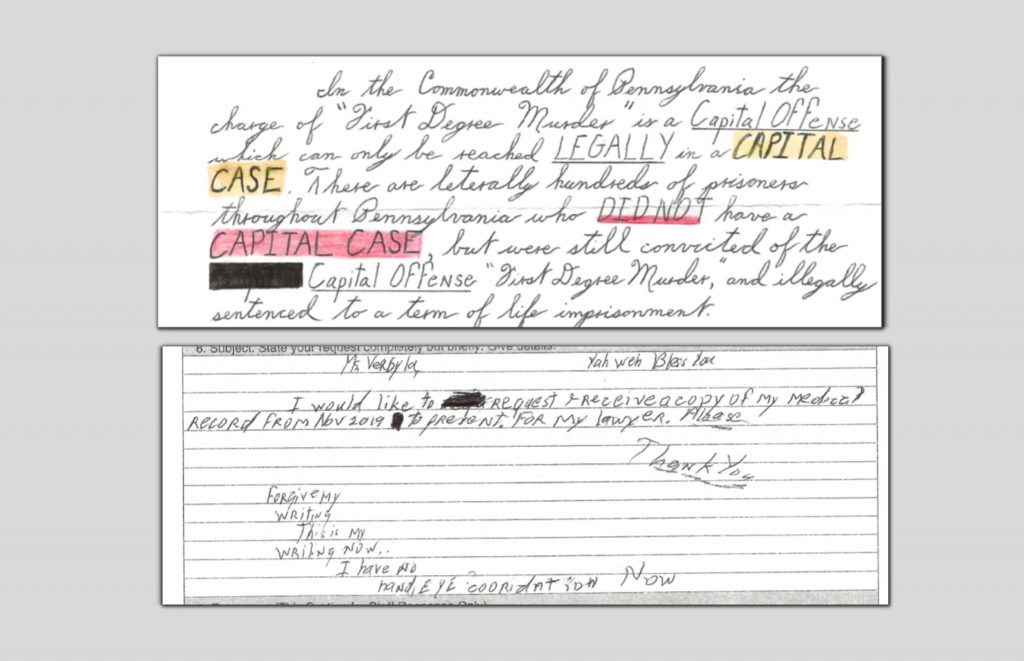 In the Commonwealth of Pennsylvania the
charge of "First Degree Murder" is a Capital Offense
which can only be reached LEGALLY in a CAPITAL
CASE. There are leterally hundreds of prisoners
throughout Pennsylvania who DID NOT have a
CAPITAL CASE, but were still convicted of the
Capital Offense "First Degree Murder," and illegally
sentenced to a term of life imprisonment.
8. Subject: State your request completely but briefly. Give details.
Ms. Verbyla, Yah weh Bless You
I would like to request & receive a copy of My Medical
RECORD FROM NOV 2019 to present. FOR My lawyer. Please
Thank You
Forgive My
writing
This is my
writing NOW..
I have NO
hand, EYE coordination NOW